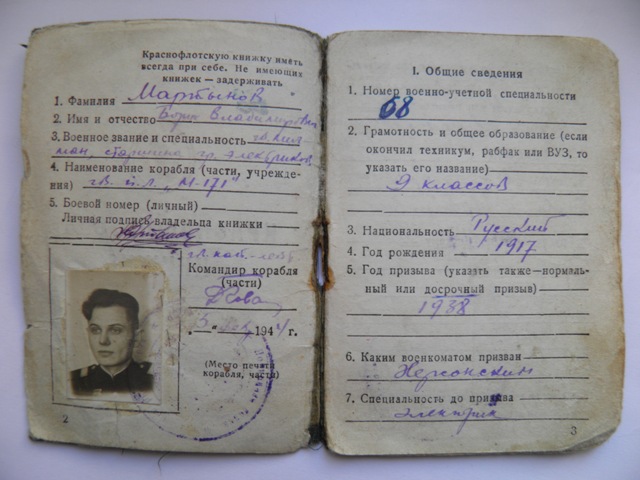 Краснофлотскую книжку иметь
всегда при себе. Не имеющих
книжек — задерживать
1. Фамилия Мартынов
2. Имя и отчество Борис Владимирович
3. Военное звание и специальность
ман, старшина гр. электриков
4. Наименование корабля (части, учрежде-
ния) гв. п.л. „М-171"
5. Боевой номер (личный)
Личная подпись владельца книжки
гв. кап.-лейт
Командир корабля
(части)
5 1944 г.
(Место печати
корабля, части)
2
I. Общие сведения
1. Номер военно-учетной специальности
68
2. Грамотность и общее образование (если
окончил техникум, рабфак или ВУЗ, то
указать его название)
9 классов
3. Национальность Русский
4. Год рождения 1917
5. Год призыва (указать также—нормаль-
ный или досрочный призыв)
1938
6. Каким военкоматом призван
Херсонским
7. Специальность до призыва
электрик
3